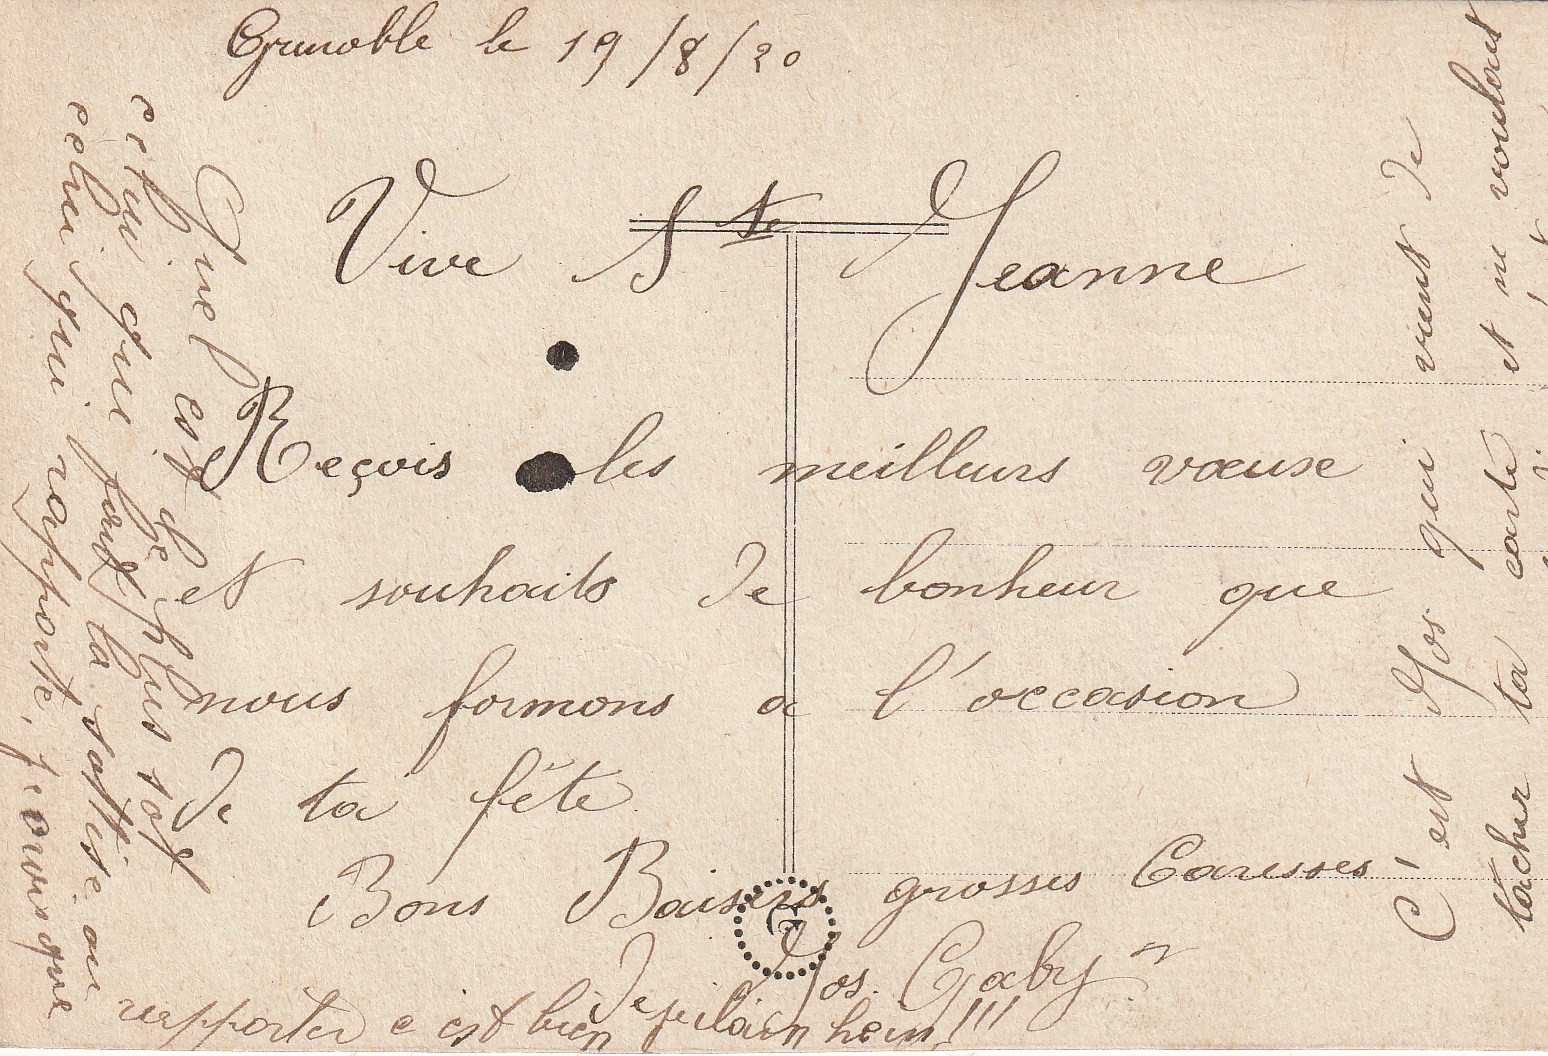 Grenoble le 19/8/20
Vive Ste Jeanne
Reçois les meilleurs vœuxe
et souhaits de bonheur que
nous formons a l'occasion
de ta fête
Bons Baisers grosses Caresses
Jos. Gaby
C'est Jos qui vient de
tacher ta carte et ne voulant
Quel est le plus sot
celui que fait la sottise ou
celui qui rapporte, puisque
rapporter c'est bien vilain hein!!!